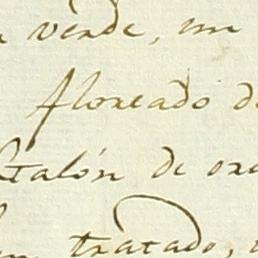 verde, un
floreado de
talón de or
tratado,